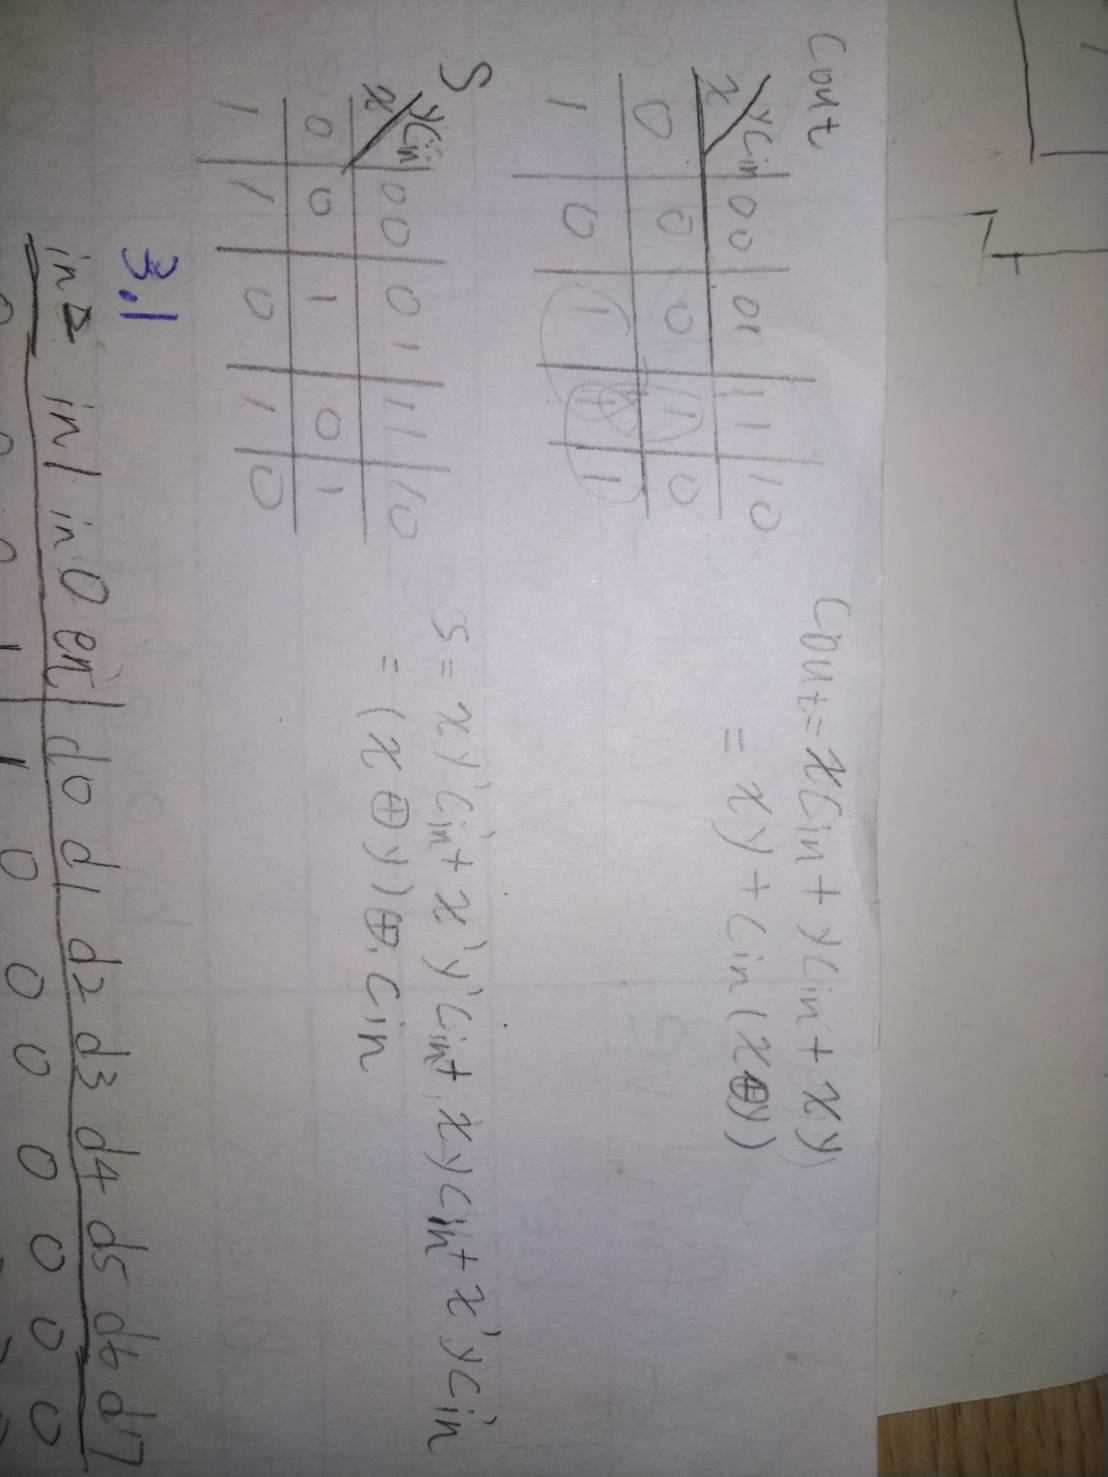 Cout
x yCin 00 01 11 10
0 0 0 1 0
1 0 1 1 1
Cout = xCin + yCin + xy
= xy + Cin(x⊕y)
S
x yCin 00 01 11 10
0 0 1 0 1
1 1 0 1 0
S = xy'Cin' + x'y'Cin + xyCin + x'yCin'
= (x⊕y)⊕Cin
3.1
in2 in1 in0 en d0 d1 d2 d3 d4 d5 d6 d7
1 1 0 0 0 0 0 0 0